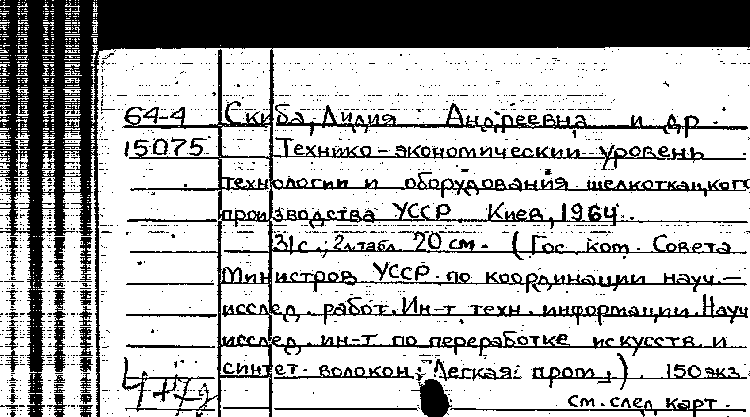 64-4 Скиба, Лидия Андреевна и др.
15075 Технико-экономический уровень
технологии и оборудования шелкоткацкого
производства УССР. Киев, 1964.
31с.; 2л.табл. 20 см. (Гос. ком. Совета
Министров УССР по координации науч.-
исслед. работ. Ин-т техн. информации. Науч
исслед. ин-т по переработке искусств. и
синтет. волокон; Легкая пром.;). 150 экз.
см. след карт.